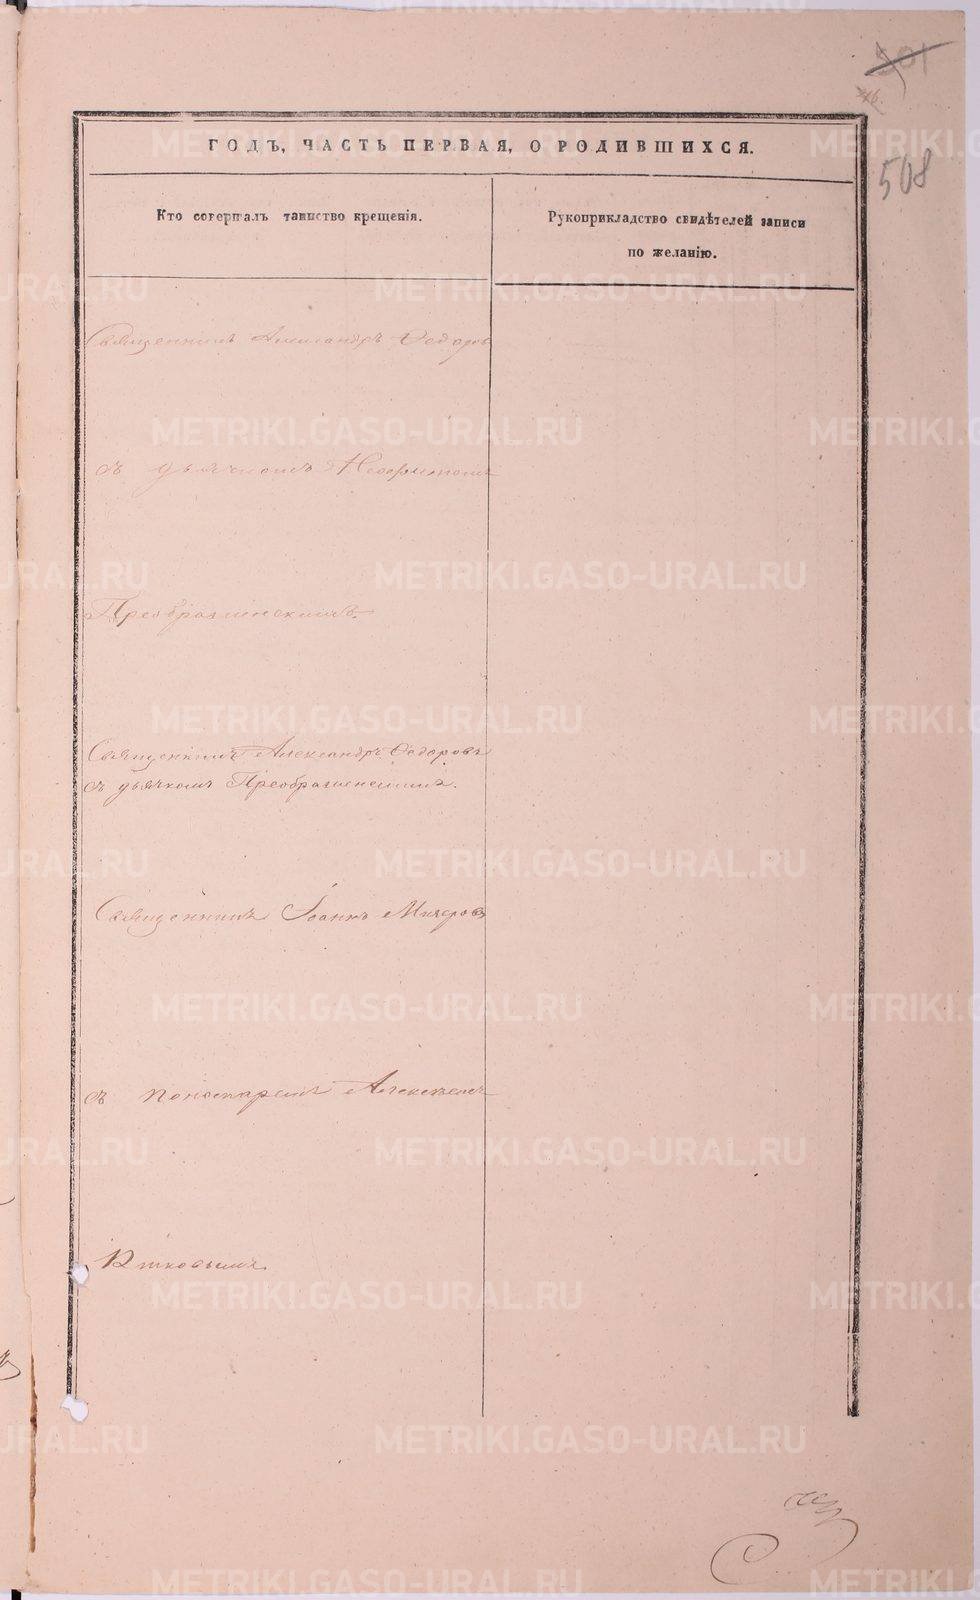 508
ГОДЪ, ЧАСТЬ ПЕРВАЯ, О РОДИВШИХСЯ.
Кто совершалъ таинство крещенія.
Рукоприкладство свидѣтелей записи
по желанію.
Священникъ Александръ Федоровъ
съ дьячкомъ Неофитомъ
Преображенскимъ.
Священникъ Александръ Федоровъ
съ дьячкомъ Преображенскимъ.
Священникъ Іоаннъ
съ пономаремъ Алексѣемъ
METRIKI.GASO-URAL.RU